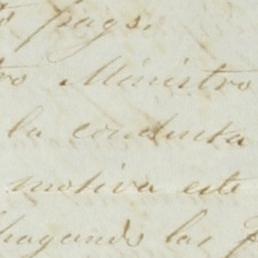 pags.
Ministro
la conducta
motiva este
pagando las